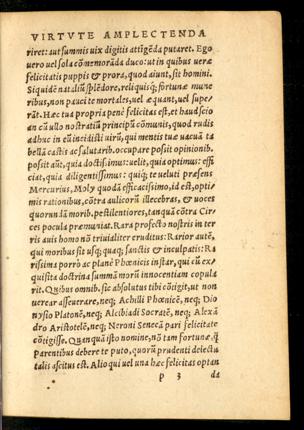 VIRTVTE AMPLECTENDA
riret: aut summis uix digitis attigēda putaret. Ego
uero uel sola cōmemorāda duco: ut in quibus uerae
felicitatis puppis & prora, quod aiunt, sit homini.
Siquidē nataliū splēdore, reliquisq; fortunae mune
ribus, non pauci te mortales, uel aequant, uel supe-
rāt. Haec tua propria penè felicitas est, et haud scio
an cū ullo nostratiū principū cōmunis, quod rudis
adhuc in eū incidisti uirū, qui mentis tuae uacuā ta
bellā castis ac salutarib. occupare possit opinionib.
possit aūt, quia doctiss.imus: uelit, quia optimus: effi
ciat, quia diligentissimus: quiq; te ueluti praesens
Mercurius, Moly quodā efficacissimo, id est, opti-
mis rationibus, cōtra aulicorū illecebras, & uoces
quorundā morib. pestilentiores, tanquā cōtra Cir-
ces pocula praemuniat. Rara profecto nostris in ter
ris auis homo nō triuialiter eruditus: Rarior autē,
qui moribus sit usq; quaq; sanctis & inculpatis: Ra
rissima porrò ac planè Phoenicis instar, qui cū ex-
quisita doctrina summā morū innocentiam copula
rit. Quibus omnib. sic absolutus tibi cōtigit, ut non
uerear asseuerare, neq; Achilli Phoenicē, neq; Dio
nysio Platonē, neq; Alcibiadi Socratē, neq; Alexā
dro Aristotelē, neq; Neroni Senecā pari felicitate
cōtigisse. Quanquā isto nomine, nō tam fortunae, q̄
Parentibus debere te puto, quorū prudenti delectu
talis ascitus est. Alioqui uel una haec felicitas optan
p 3 da